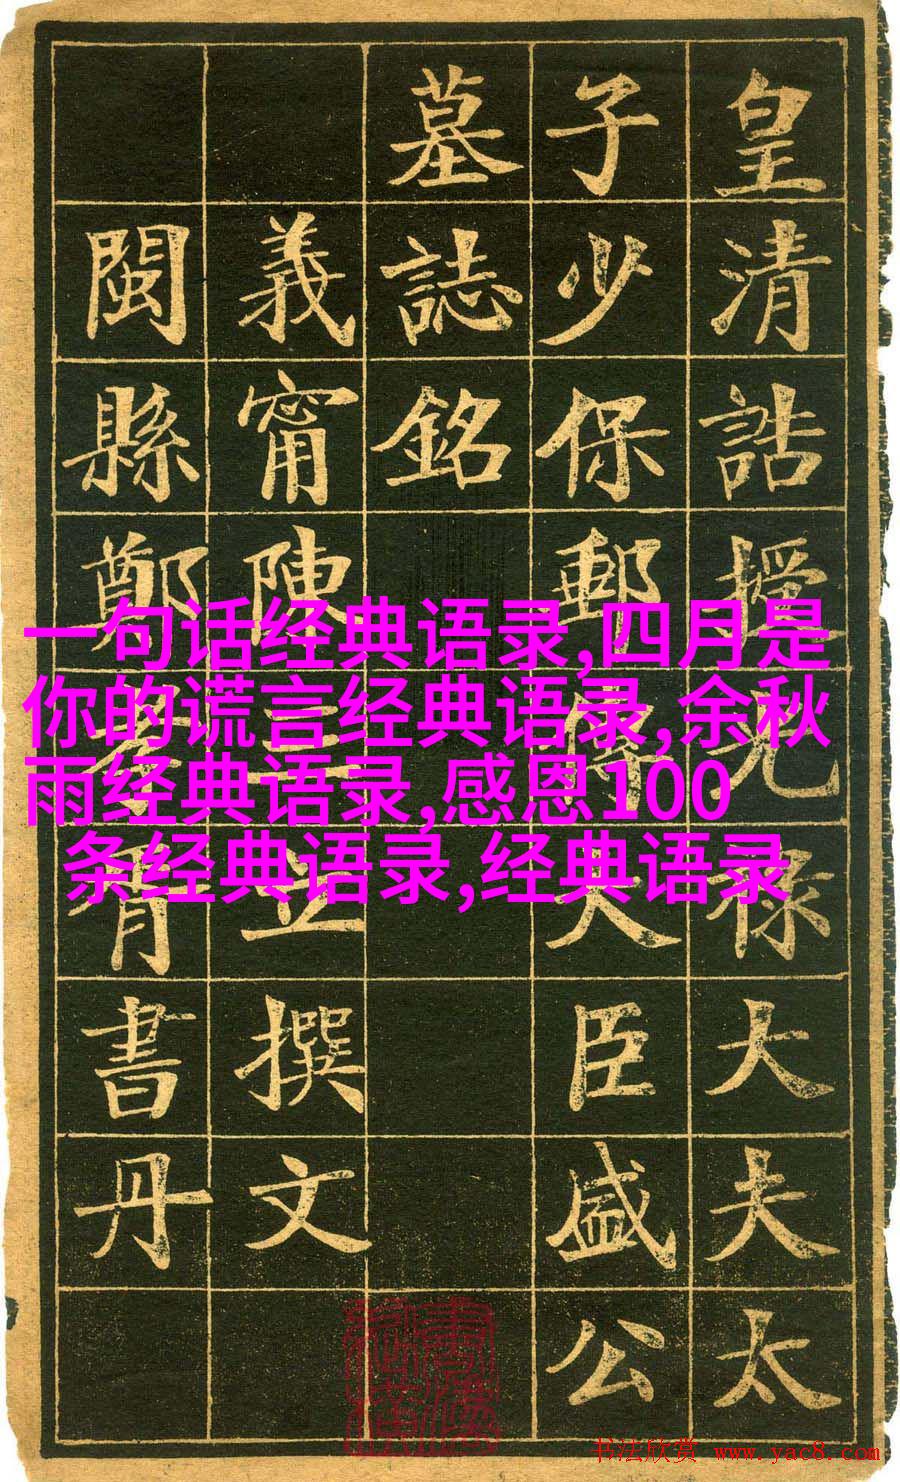 皇清誥授光祿大夫太
子少保郵傳大臣盛公
墓誌銘
義甯陳三立撰文
閩縣鄭孝胥書丹
一句话经典语录,四月是
你的谎言经典语录,余秋
雨经典语录,感恩100
条经典语录,经典语录
书法欣赏 www.yac8.com